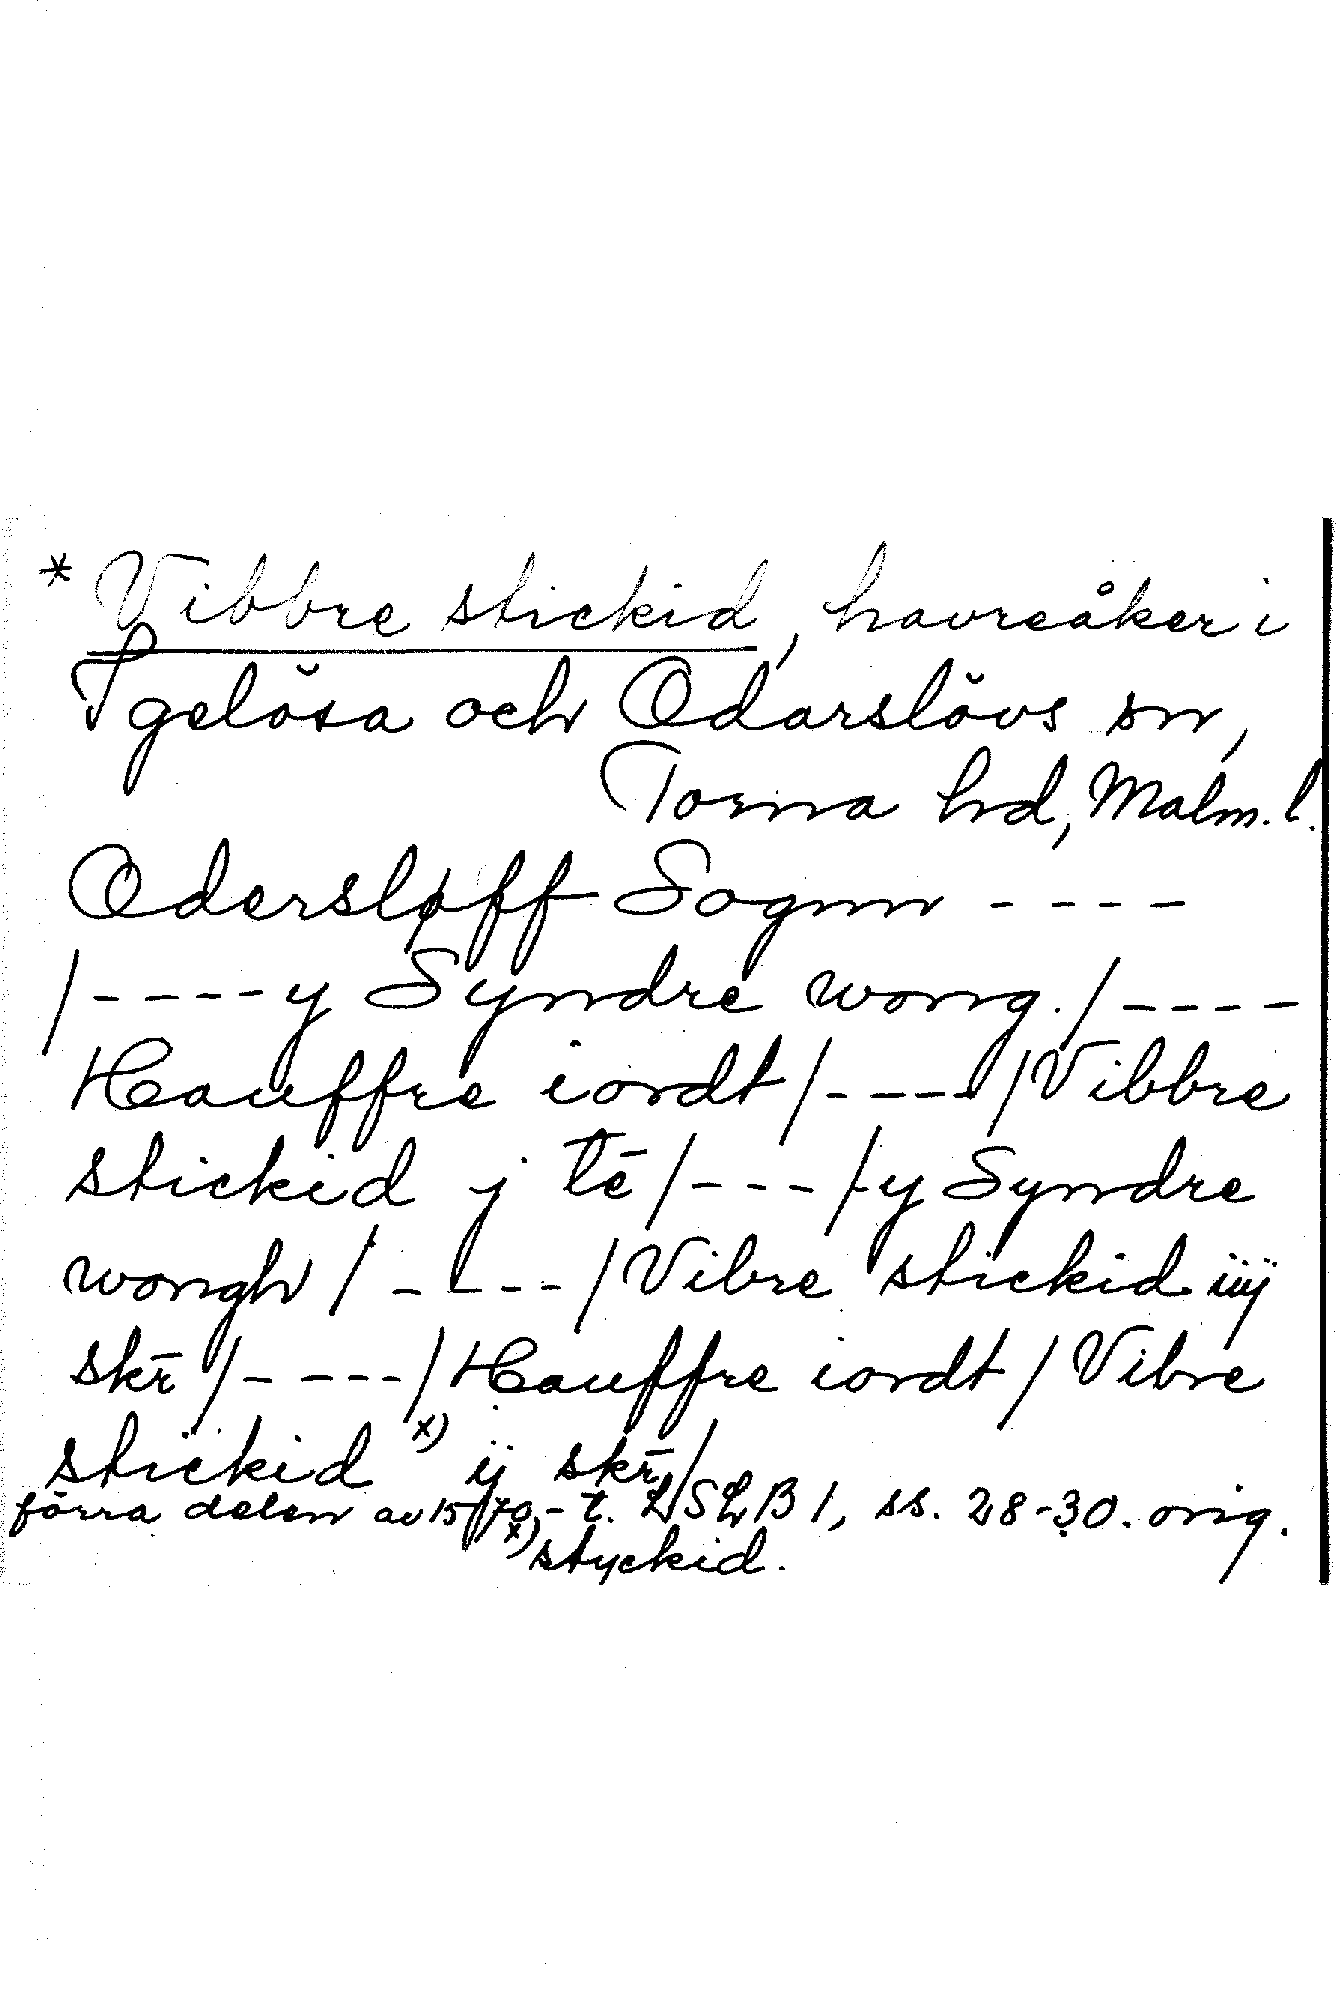 * Vibbre stickid, havreåker i
Igelösa och Odarslövs snr,
Torna hd, Malm. l.
Odersløff Sognn - - - -
/- - - - y Syndre wong. / - - - -
Hauffre iordt / - - - - / Vibbre
stickid j tē / - - - /-y Syndre
wongh / - - - - / Vibre stickid iiij
skr̄ / - - - - / Hauffre iordt / Vibre
stickid x) ij skr̄ /
förra delen av 1570-t. LSLB 1, ss. 28-30. orig.
x) styckid.